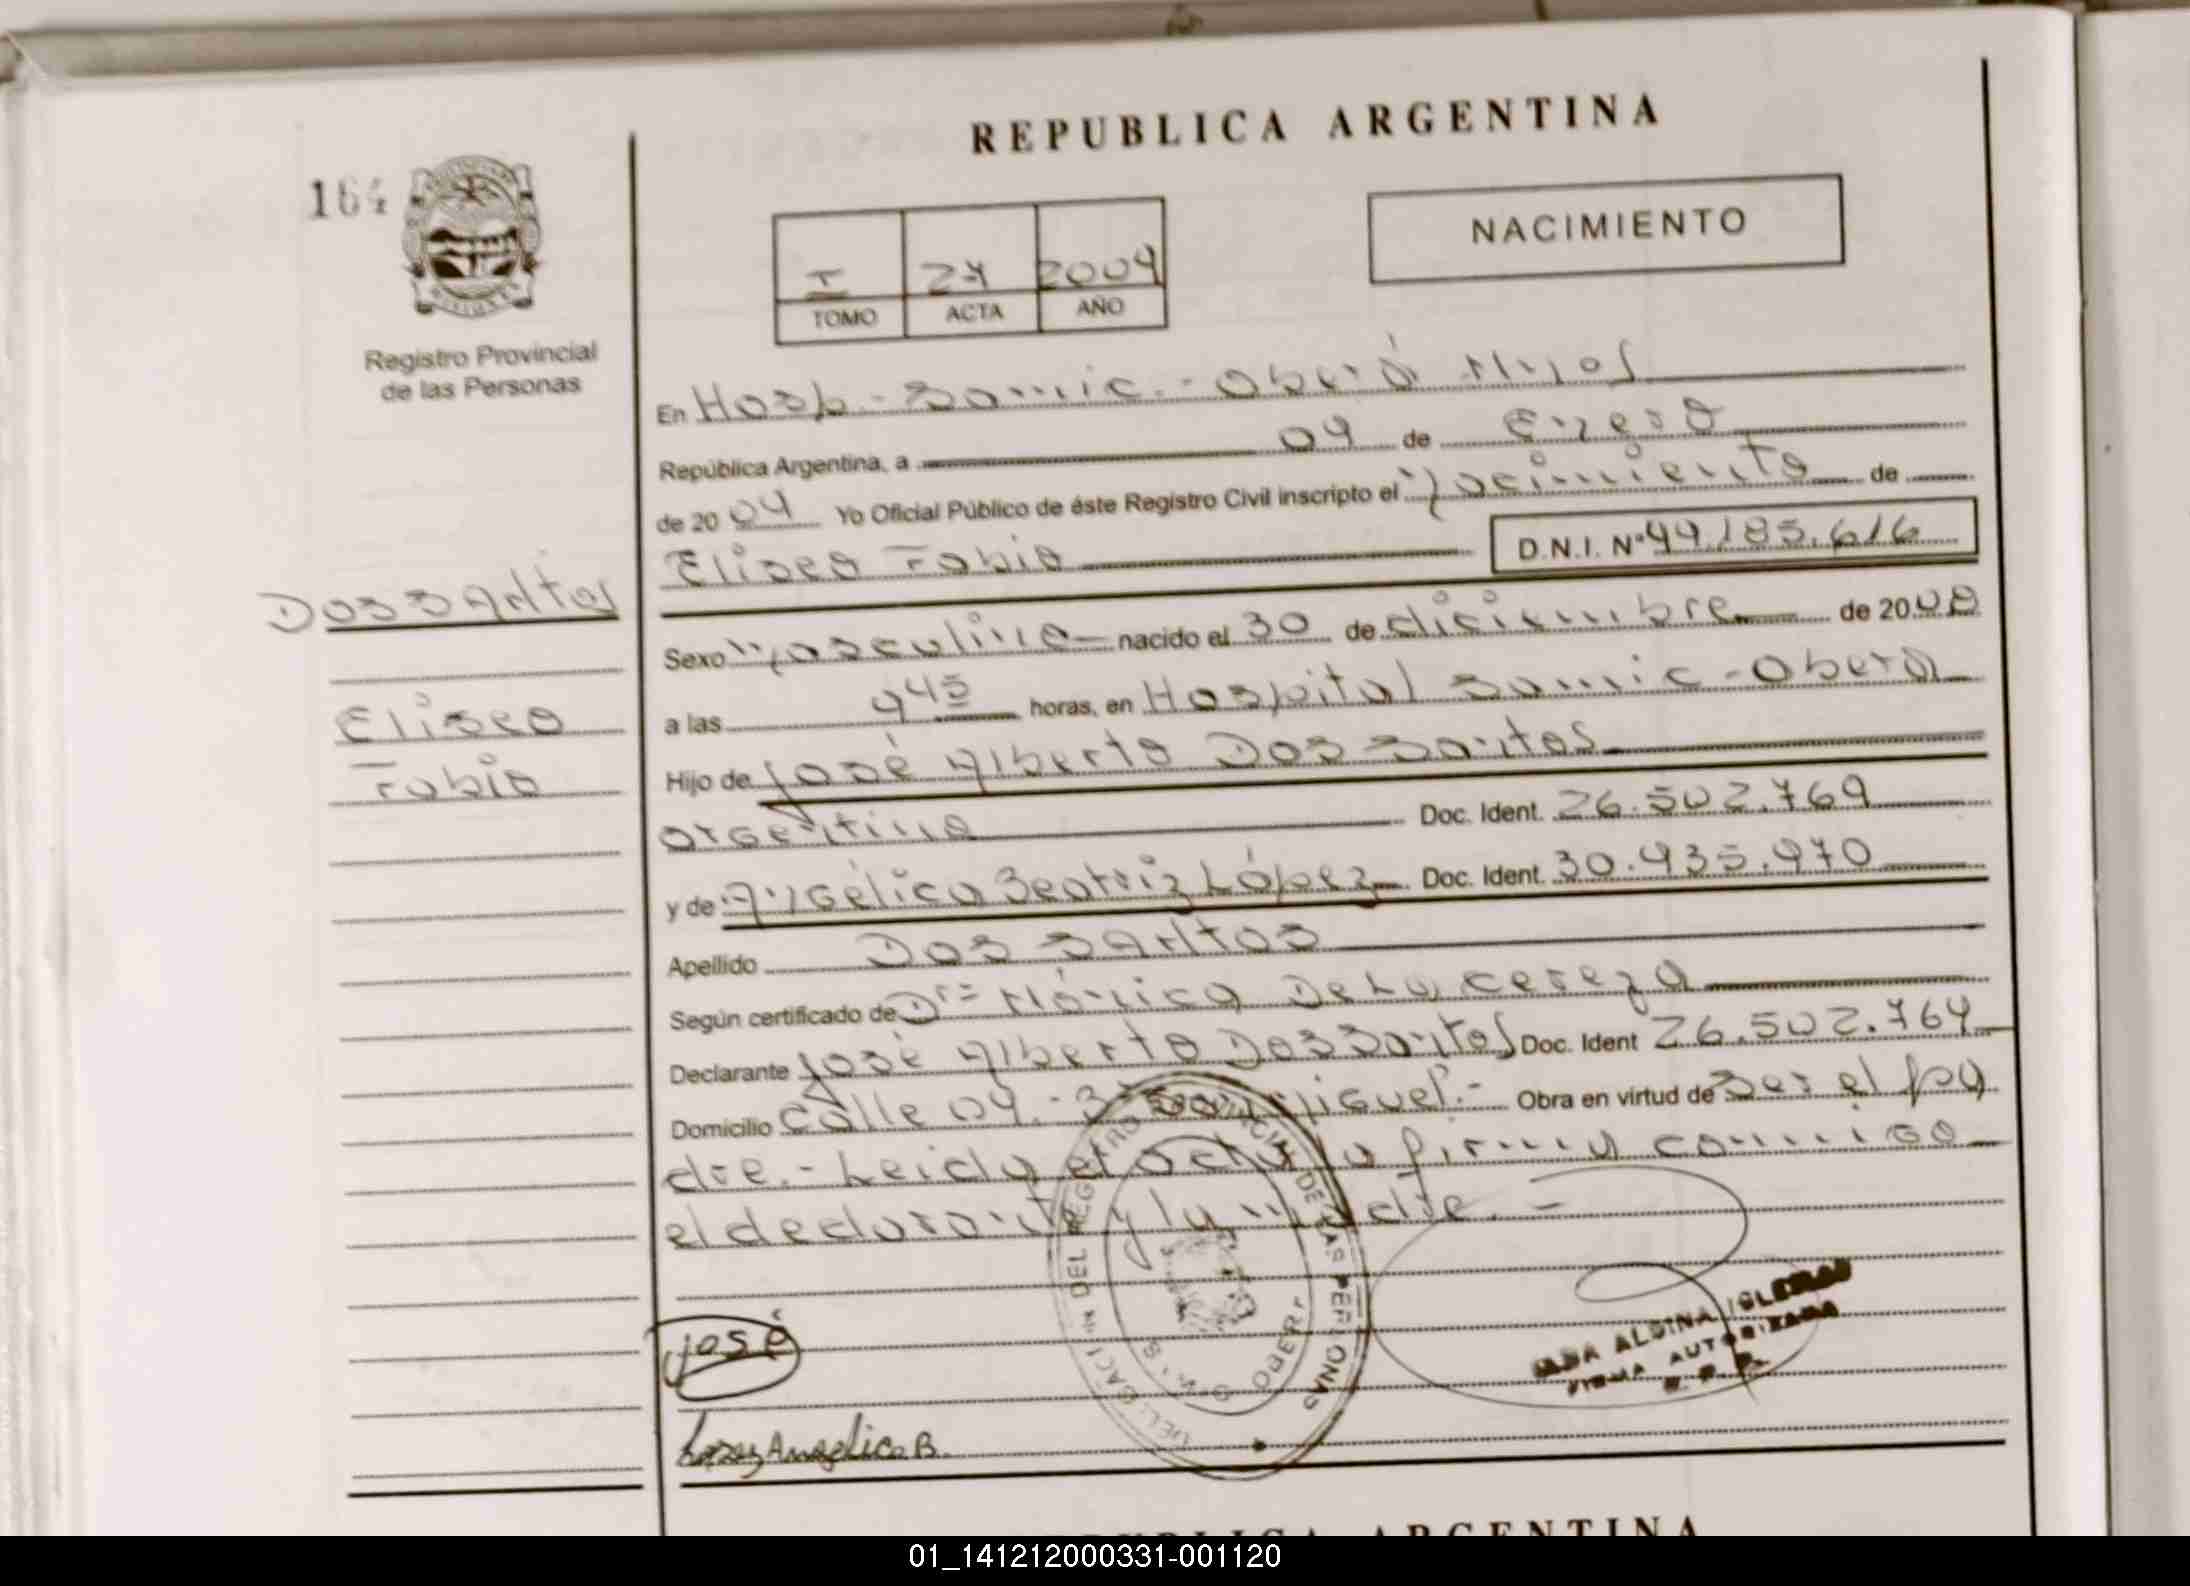 REPUBLICA ARGENTINA
164
NACIMIENTO
I 27 2004
TOMO ACTA AÑO
Registro Provincial
de las Personas
En Hosp.- Samic.- Oberá Mnes
República Argentina, a 09 de Enero
de 2004 Yo Oficial Público de éste Registro Civil inscripto el Nacimiento de
Eliseo Fabio D.N.I. Nº 44.185.616
Dos Santos
Sexo Masculino nacido el 30 de diciembre de 20
Eliseo
a las 9 45 horas, en Hospital Samic - Oberá
Fabio
Hijo de José Alberto Dos Santos
argentino Doc. Ident. 26.502.769
y de Angélica Beatriz López Doc. Ident. 30.435.970
Apellido Dos Santos
Según certificado de Drª Mónica De La Cereza
Declarante José Alberto Dos Santos Doc. Ident 26.502.769
Domicilio Calle 09.- San Miguel.- Obra en virtud de Ser el pa
dre.- Leida el acta la firma conmigo
el declarante y la madre.=
DEL REGISTRO PROVINCIAL DE LAS PERSONAS
José
ALDINA IGLESIAS
FIRMA AUTORIZADA
Lopez Angelica B.
REPUBLICA ARGENTINA
01_141212000331-001120